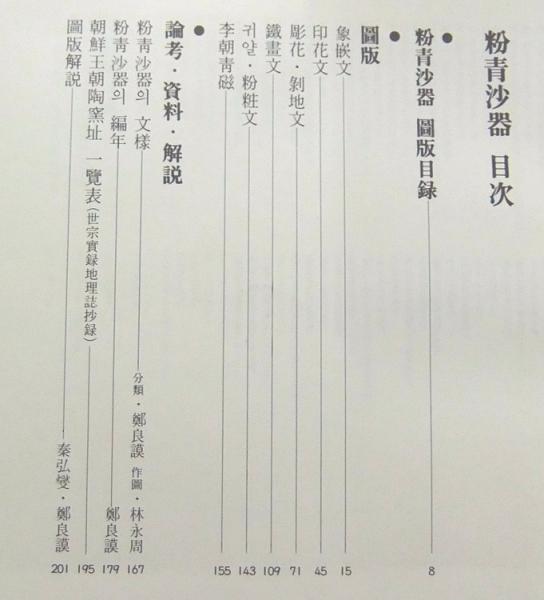 粉青沙器 目次
● 粉青沙器 圖版目錄 8
● 圖版
象嵌文 15
印花文 45
彫花・剝地文 71
鐵畫文 109
귀얄・粉粧文 143
李朝靑磁 155
● 論考・資料・解説
粉靑沙器의 文樣 分類・鄭良謨 作圖・林永周 167
粉靑沙器의 編年 鄭良謨 179
朝鮮王朝陶窯址 一覽表(世宗實錄地理誌抄錄) 195
圖版解説 秦弘燮・鄭良謨 201